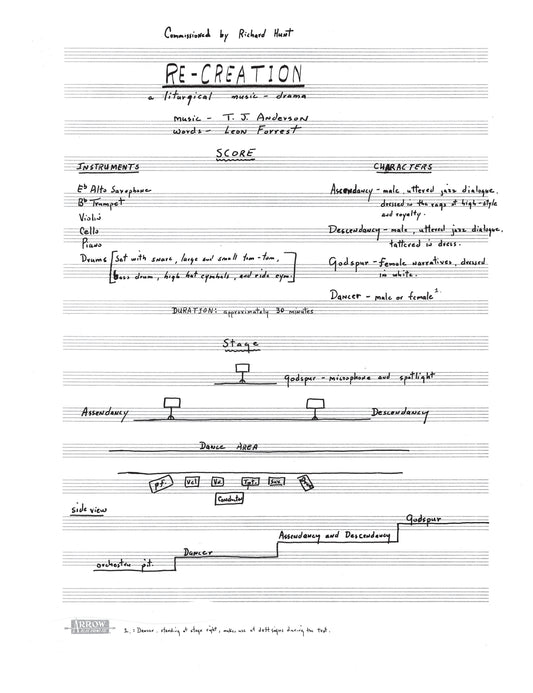 Commissioned by Richard Hunt
RE-CREATION
a liturgical music - drama
music - T. J. Anderson
words - Leon Forrest
SCORE
INSTRUMENTS
Eb Alto Saxophone
Bb Trumpet
Violin
Cello
Piano
Drums [Set with snare, large and small tom-tom,
bass drum, high hat cymbals, and ride cym.]
CHARACTERS
Ascendancy - male, uttered jazz dialogue,
dressed in the rags of high-style
and royalty.
Descendancy - male, uttered jazz dialogue,
tattered in dress.
Godspur - female narratives, dressed
in white.
Dancer - male or female 1.
DURATION: approximately 30 minutes
Stage
godspur - microphone and spotlight
Assendancy
Descendancy
Dance AREA
p.f. Vcl Vn Tpt. Sax.
Conductor
side view
Godspur
Assendancy and Descendancy
Dancer
orchestra pit.
ARROW
1. = Dancer, standing at stage right, makes use of daffsigns during the text.